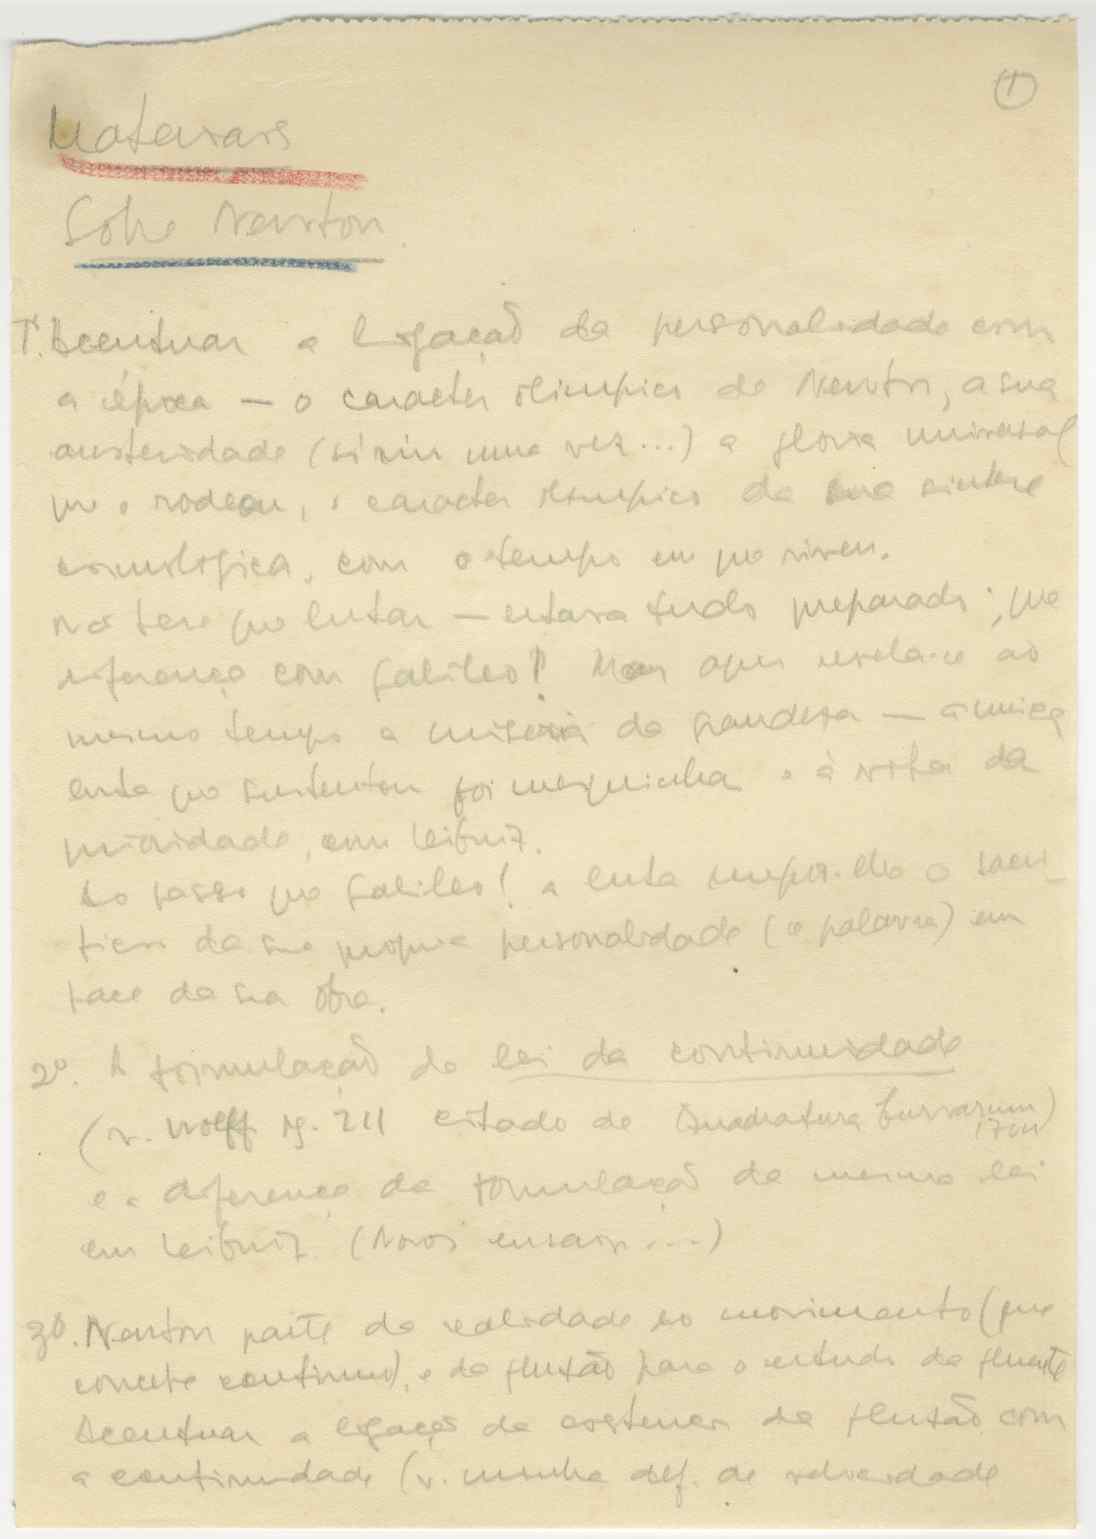 1
Materiais
Sobre Newton
1º. Acentuar a ligação da personalidade com
a época — o caracter olimpico de Newton, a sua
austeridade (só riu uma vez...) a gloria universal
que o rodeou, o caracter olimpico da sua sintese
cosmologica, com o tempo em que viveu.
Não teve que lutar — estava tudo preparado; que
diferença com Galileo! Mas aqui revela-se ao
mesmo tempo a miseria da grandeza — a unica
luta que sustentou foi mesquinha, à volta da
prioridade, com Leibniz.
Ao passo que Galileo! a luta impoz-lhe o sacri-
ficio da sua propria personalidade (a palavra) em
face da sua obra.
2º. A formulação da lei da continuidade
(v. Wolff pg. 211 citado de Quadratura Curvarum)
e a diferença da formulação da mesma lei
em Leibniz (Novos ensaios....)
3º. Newton parte da realidade do movimento (que
concebe continuo), e da fluxão para o estudo da fluente
Acentuar a ligação da existencia da fluxão com
a continuidade (v. minha def. de velocidade